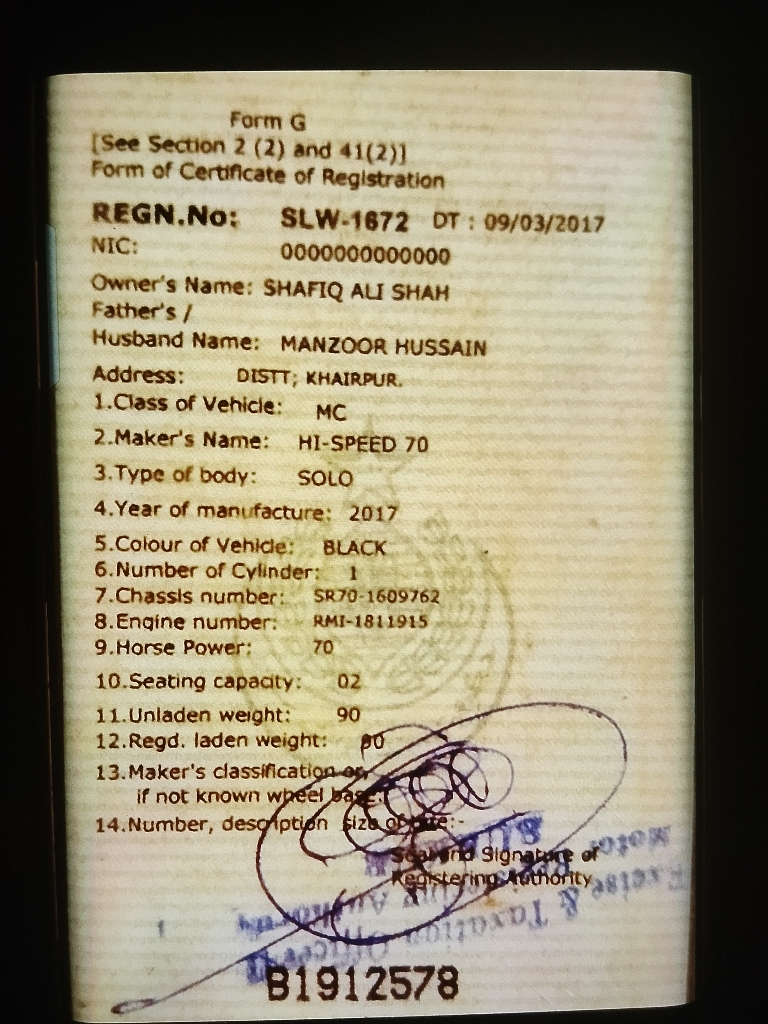 Form G
[See Section 2 (2) and 41(2)]
Form of Certificate of Registration
REGN.No: SLW-1672 DT : 09/03/2017
NIC: 0000000000000
Owner's Name: SHAFIQ ALI SHAH
Father's /
Husband Name: MANZOOR HUSSAIN
Address: DISTT; KHAIRPUR.
1.Class of Vehicle: MC
2.Maker's Name: HI-SPEED 70
3.Type of body: SOLO
4.Year of manufacture: 2017
5.Colour of Vehicle: BLACK
6.Number of Cylinder: 1
7.Chassis number: SR70-1609762
8.Engine number: RMI-1811915
9.Horse Power: 70
10.Seating capacity: 02
11.Unladen weight: 90
12.Regd. laden weight: 90
13.Maker's classification or,
if not known wheel base:
14.Number, description size of tyre:-
Seal and Signature of
Registering Authority
Motor
Excise & Taxation Officer
B1912578